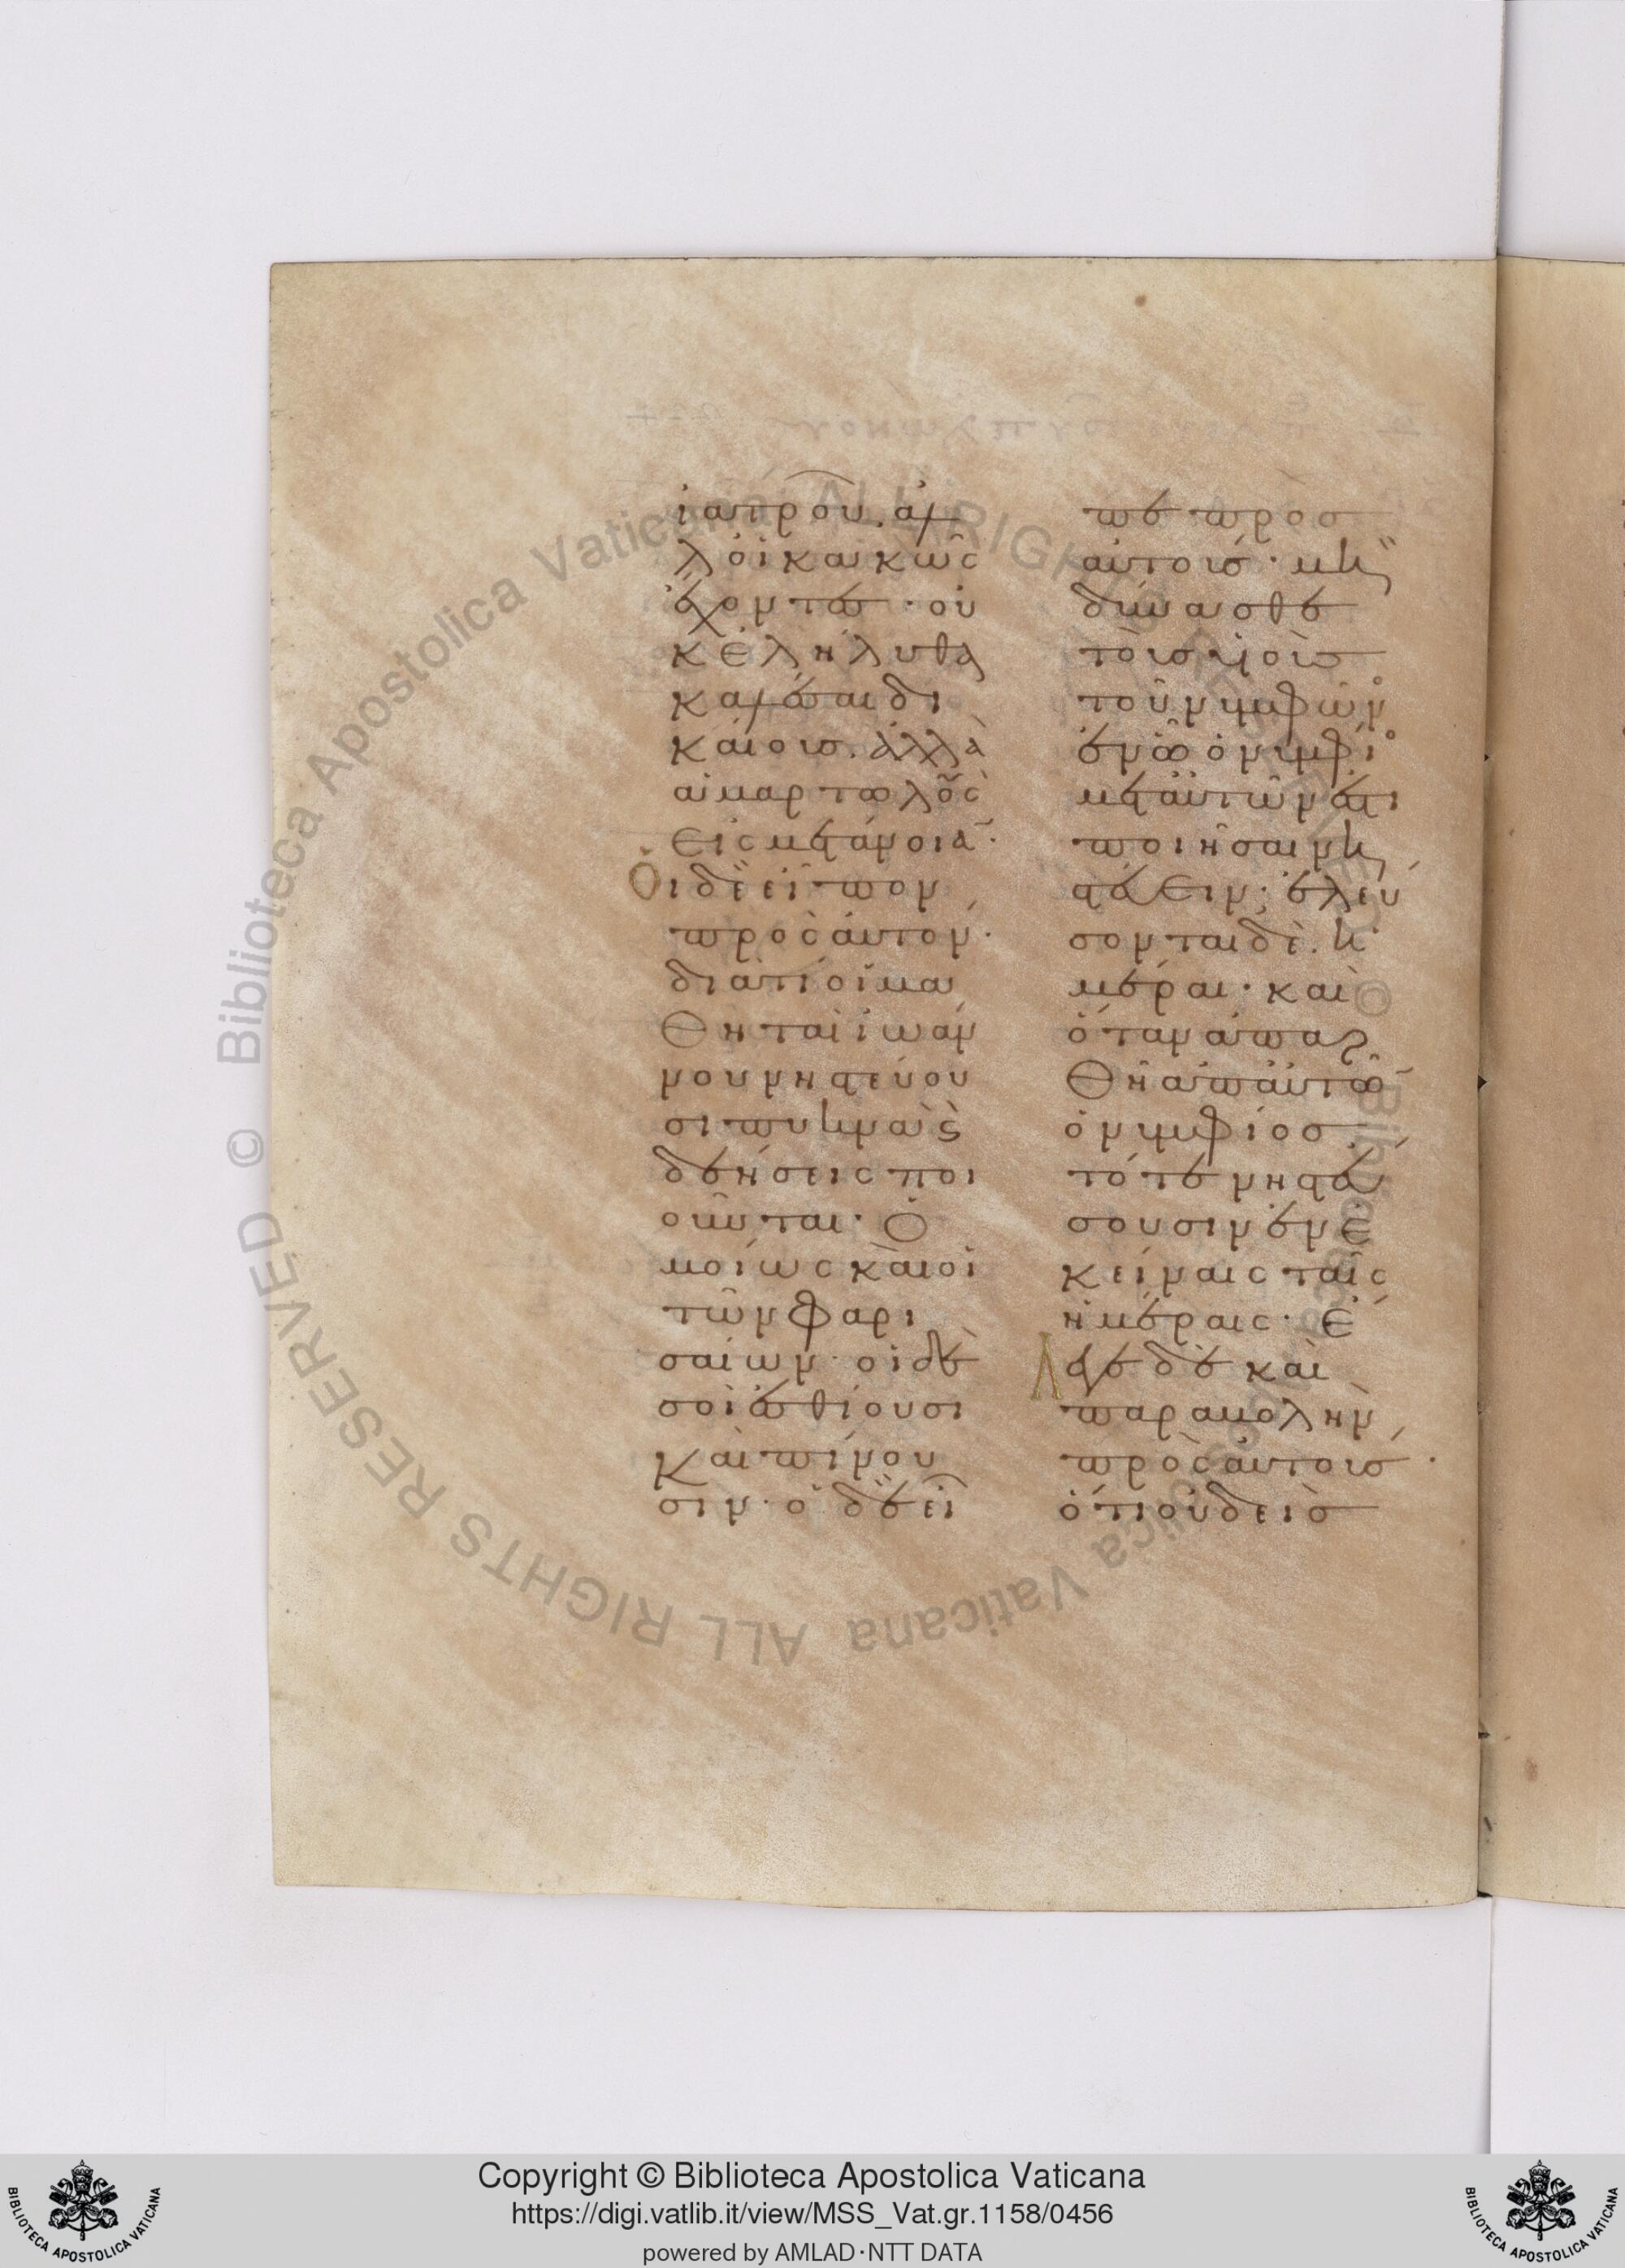 ἰατροῦ. ἀλ
λ' οἱ κακῶς
ἔχοντες· οὐ
κ ἐλήλυθα
καλέσαι δι
καίους. ἀλλὰ
ἁμαρτωλοὺς
εἰς μετάνοιαν·
Οἱ δὲ εἶπον
πρὸς αὐτόν·
διατί οἱ μα
θηταὶ ἰωάν
νου νηστεύου
σι πυκνὰ καὶ
δεήσεις ποι
οῦνται· ὁ
μοίως καὶ οἱ
τῶν φαρι
σαίων· οἱ δὲ
σοὶ ἐσθίουσι
καὶ πίνου
σιν· ὁ δὲ εἶ
πε πρὸς
αὐτούς· μὴ
δύνασθε
τοὺς υἱοὺς
τοῦ νυμφῶνος
ἐν ᾧ ὁ νυμφίος
μετ' αὐτῶν ἐστι
ποιῆσαι νη
στεύειν· ἐλεύ
σονται δὲ ἡ
μέραι· καὶ
ὅταν ἀπαρ
θῇ ἀπ' αὐτῶν
ὁ νυμφίος
τότε νηστεύ
σουσιν ἐν ἐ
κείναις ταῖς
ἡμέραις· Ἔ
λεγε δὲ καὶ
παραβολὴν
πρὸς αὐτούς·
ὅτι οὐδεὶς
Copyright © Biblioteca Apostolica Vaticana
https://digi.vatlib.it/view/MSS_Vat.gr.1158/0456
powered by AMLAD·NTT DATA
BIBLIOTECA APOSTOLICA VATICANA
BIBLIOTECA APOSTOLICA VATICANA
© Biblioteca Apostolica Vaticana ALL RIGHTS RESERVED
© Biblioteca Apostolica Vaticana ALL RIGHTS RESERVED